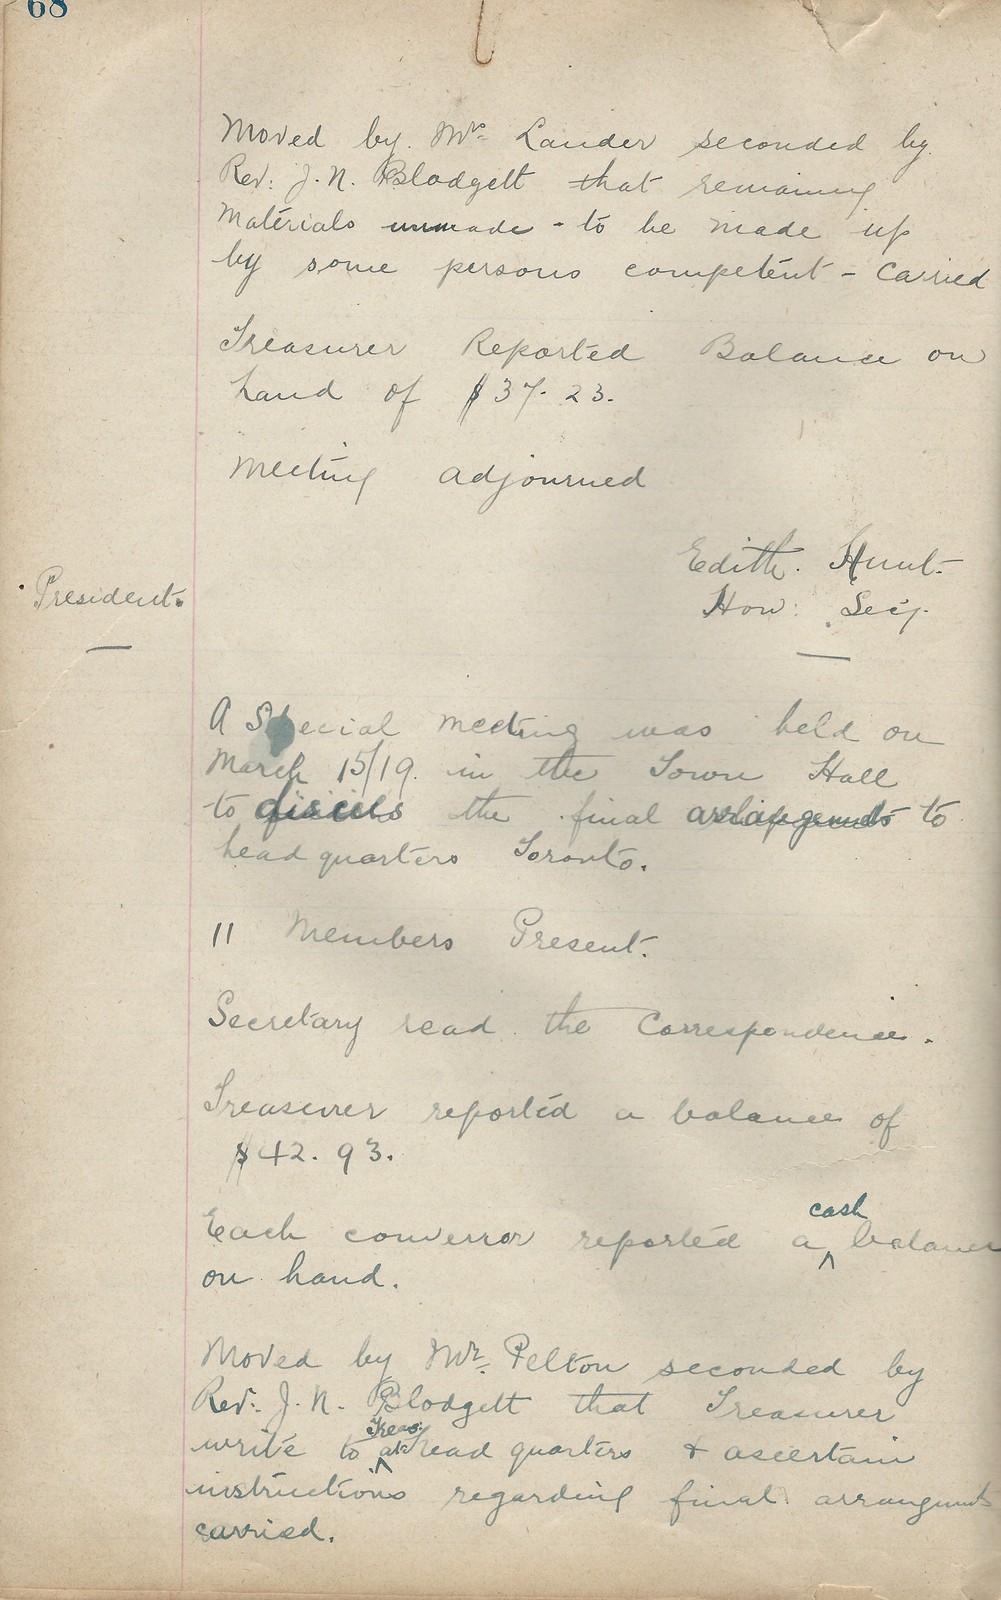 68
Moved by. Mrs Lander seconded by.
Rev: J. N. Blodgett that remaining
Materials unmade - to be made up
by some persons competent - Carried
Treasurer Reported Balance on
hand of $37.23.
Meeting adjourned
Edith. Hunt.
President.
Hon: Secy.
A Special meeting was held on
March 15/19. in the Town Hall
to discuss the final arrangements to
head quarters Toronto.
11 Members Present.
Secretary read the Correspondence.
Treasurer reported a balance of
$42.93.
cash
Each convenor reported a ^ balance
on hand.
Moved by Mr. Pelton seconded by
Rev: J. N. Blodgett that Treasurer
Treas:
write to at ^ head quarters & ascertain
instructions regarding final arrangments
carried.